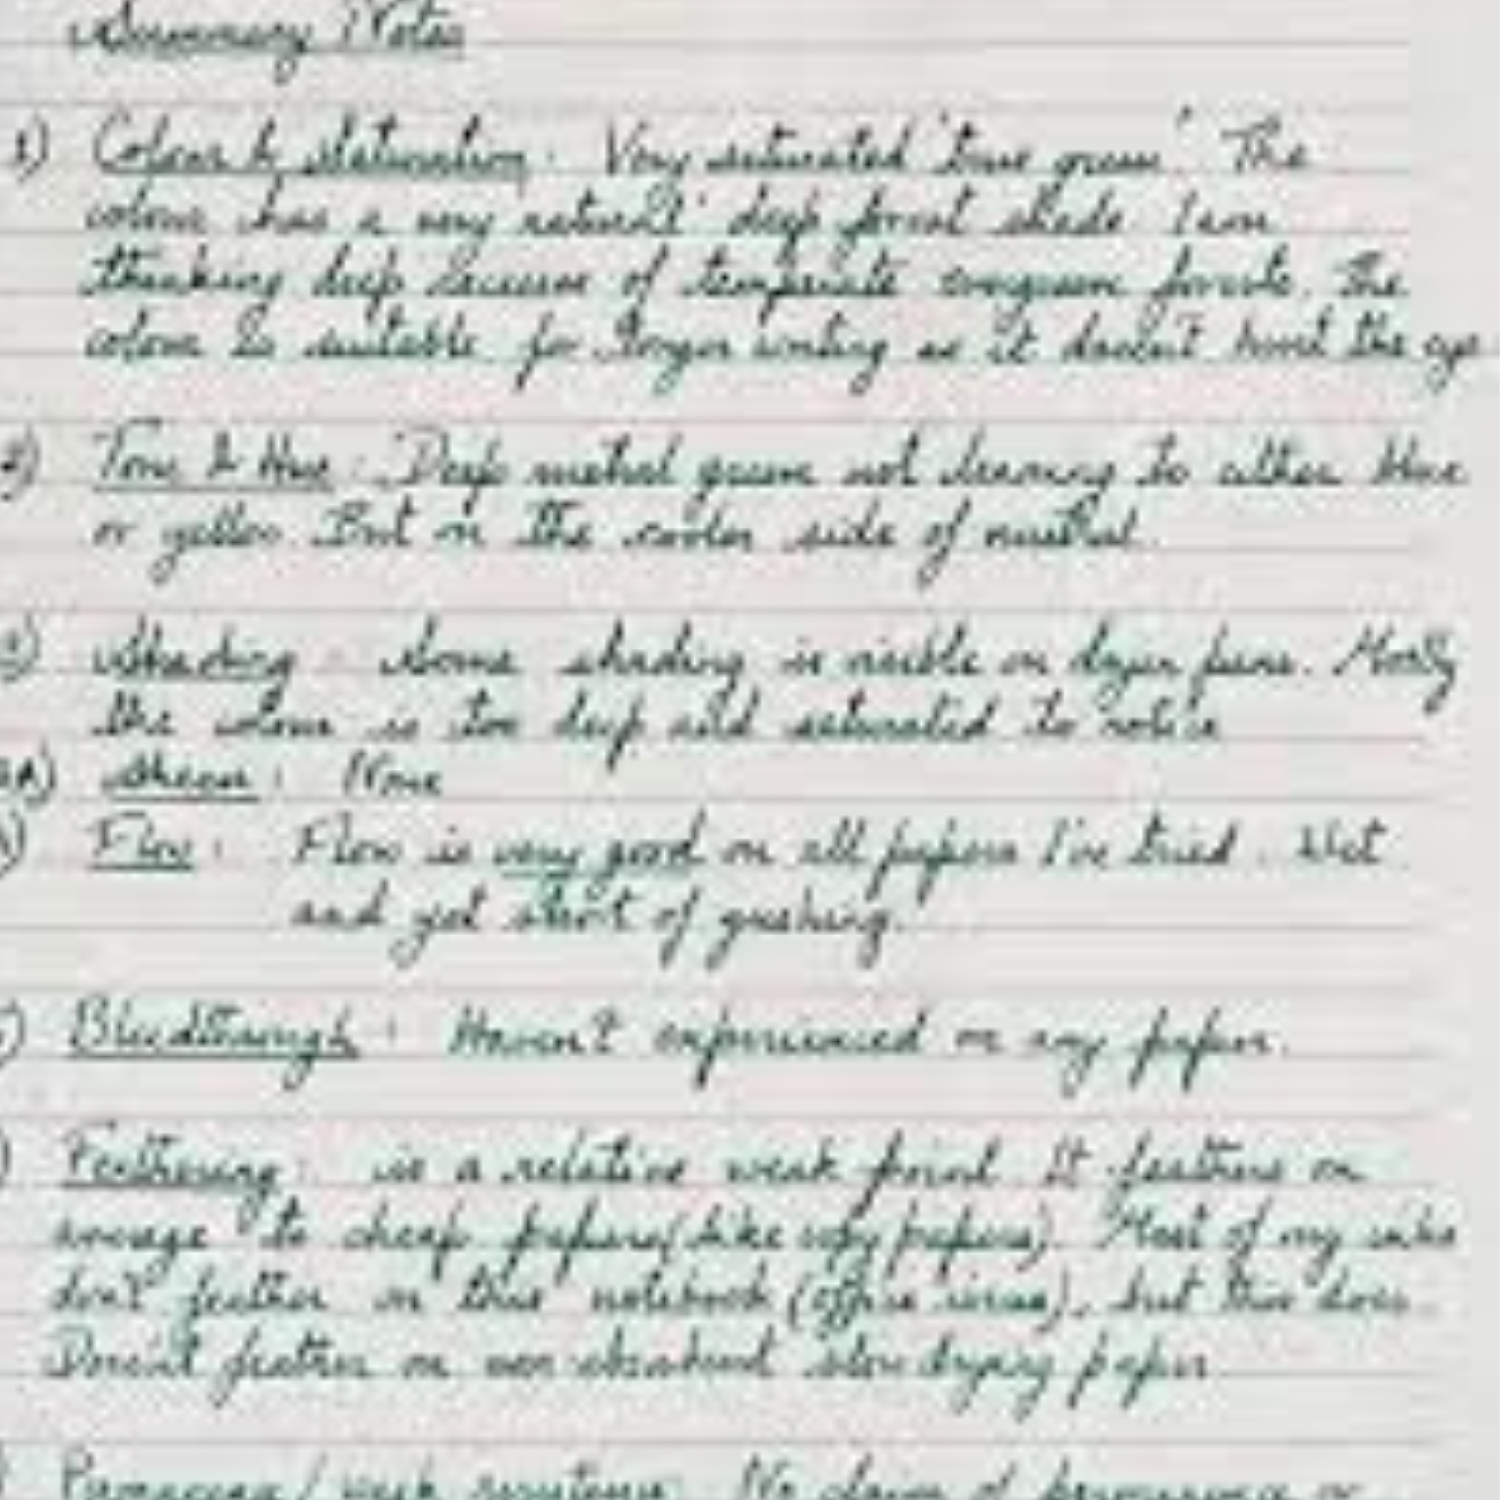 Summary Notes
1) Colour & Saturation: Very saturated 'true green'. The
colour has a very 'natural' deep forest shade. I am
thinking deep recesses of temperate evergreen forests. The
colour is suitable for longer writing as it doesn't hurt the eye
2) Tone & Hue: Deep neutral green not leaning to either blue
or yellow. But on the cooler side of neutral.
3) Shading: Some shading is visible on dryer pens. Mostly
the colour is too deep and saturated to notice
3A) Sheen: None
) Flow: Flow is very good on all papers I've tried. Wet
and yet short of gushing.
) Bleedthrough: Haven't experienced on any paper.
) Feathering: is a relative weak point. It feathers on
average to cheap papers (like copy papers). Most of my inks
don't feather on this notebook (office ), but this does.
Doesn't feather on non absorbent slow drying paper
) / wash resistance: No claim of permanence or